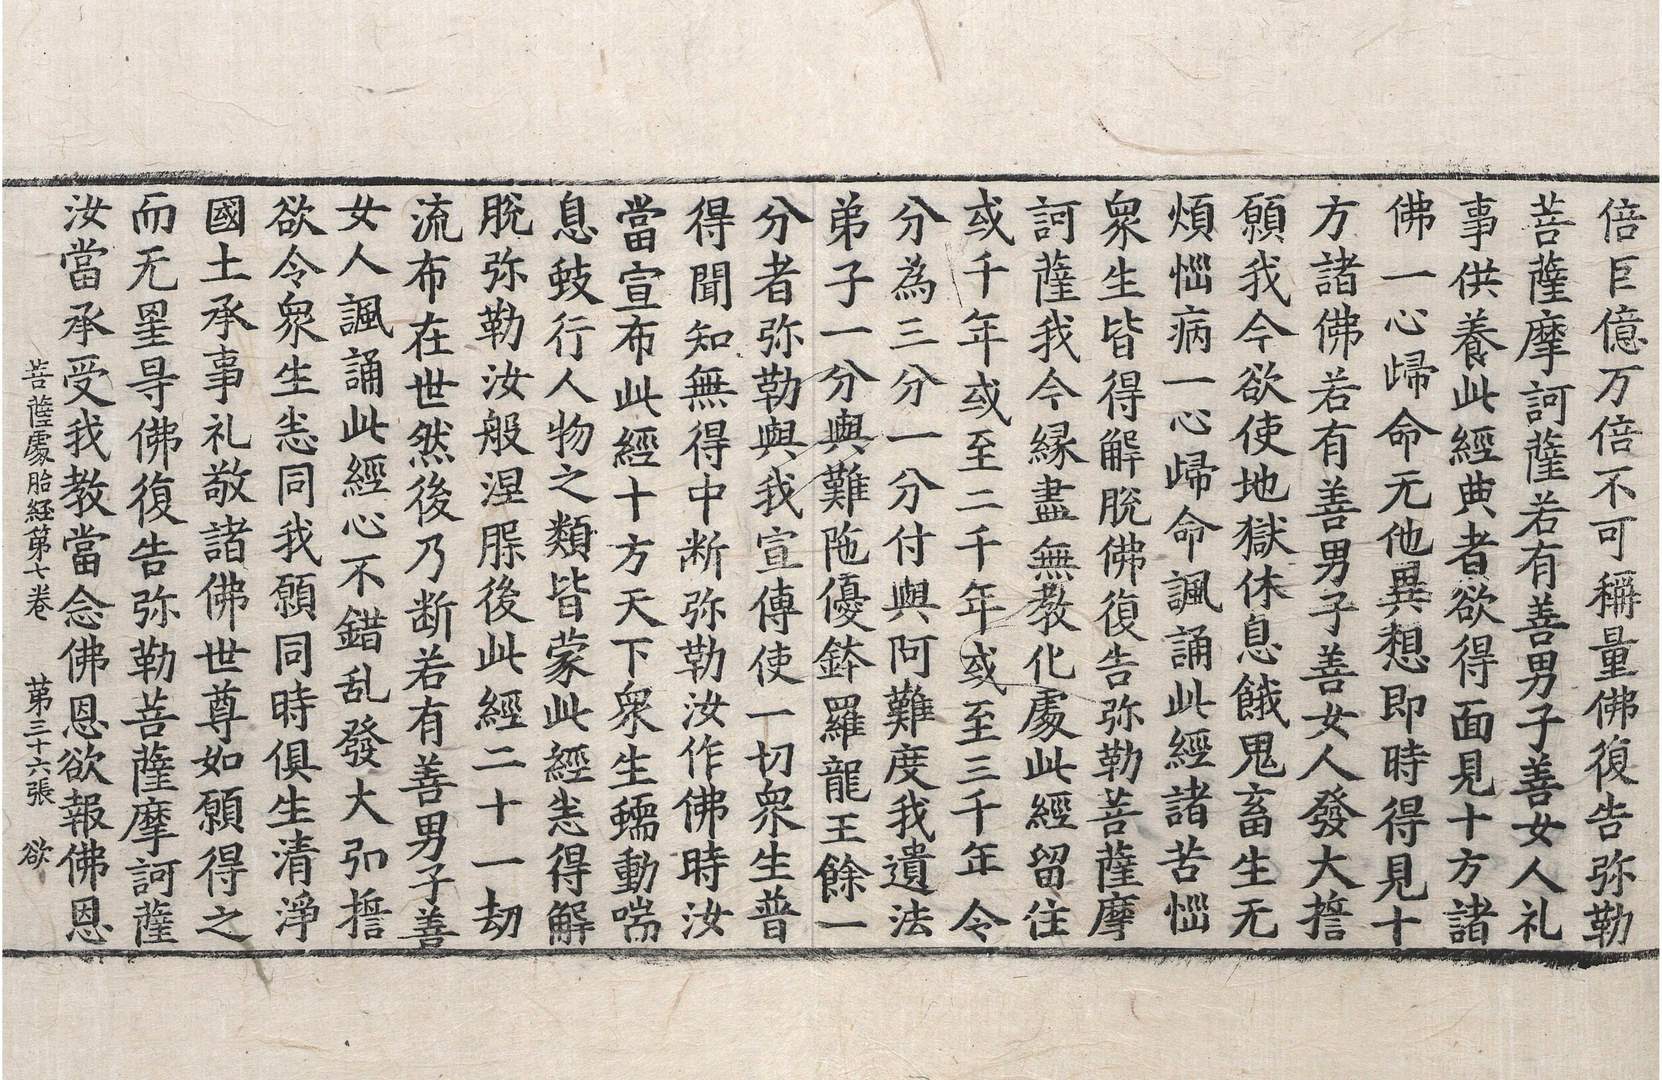 倍巨億万倍不可稱量佛復告弥勒
菩薩摩訶薩若有善男子善女人礼
事供養此經典者欲得面見十方諸
佛一心歸命无他異想即時得見十
方諸佛若有善男子善女人發大誓
願我今欲使地獄休息餓鬼畜生无
煩惱病一心歸命諷誦此經諸苦惱
衆生皆得解脫佛復告弥勒菩薩摩
訶薩我今緣盡無教化處此經留住
或千年或至二千年或至三千年令
分為三分一分付與阿難度我遺法
弟子一分與難陁優鉢羅龍王餘一
分者弥勒與我宣傳使一切衆生普
得聞知無得中断弥勒汝作佛時汝
當宣布此經十方天下衆生蠕動喘
息蚑行人物之類皆蒙此經恙得解
脫弥勒汝般涅槃後此經二十一劫
流布在世然後乃断若有善男子善
女人諷誦此經心不錯乱發大弘誓
欲令衆生恙同我願同時俱生清淨
國土承事礼敬諸佛世尊如願得之
而无罣㝵佛復告弥勒菩薩摩訶薩
汝當承受我教當念佛恩欲報佛恩
菩薩處胎経第七卷 第三十六張 欲